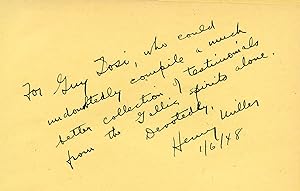 For Guy Tosi, who could
undoubtedly compile a much
better collection of testimonials
from the Gallic spirits alone.
Devotedly,
Henry Miller
1/6/48